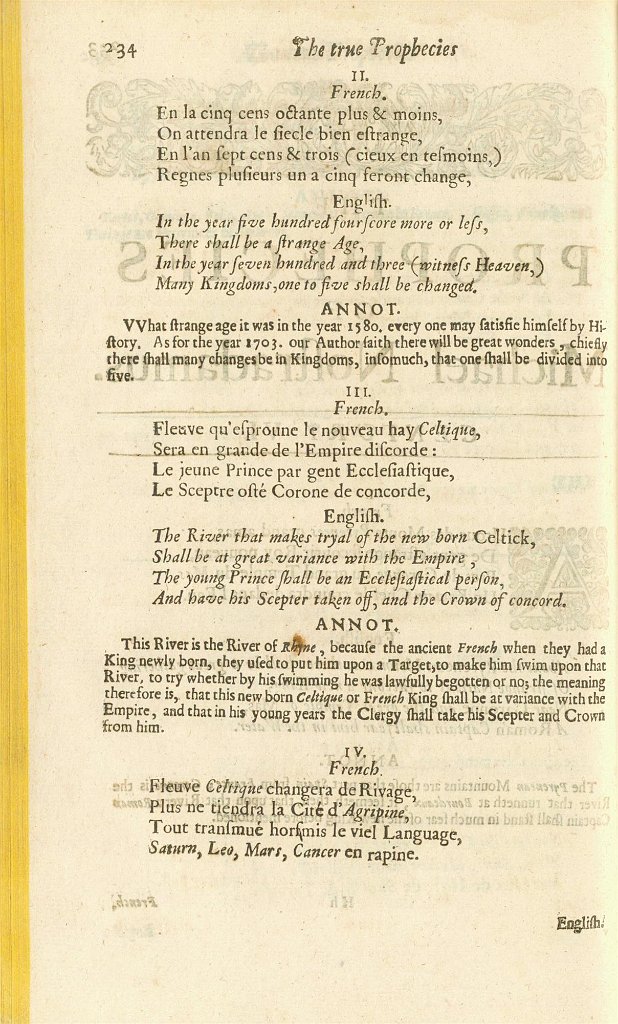 234 The true Prophecies
II.
French.
En la cinq cens octante plus & moins,
On attendra le ſiecle bien eſtrange,
En l'an ſept cens & trois (cieux en teſmoins,)
Regnes pluſieurs un a cinq feront change,
Engliſh.
In the year five hundred fourſcore more or leſs,
There shall be a ſtrange Age,
In the year ſeven hundred and three (witneſs Heaven,)
Many Kingdoms, one to five ſhall be changed.
ANNOT.
VVhat ſtrange age it was in the year 1580. every one may ſatisfie himſelf by Hi-
ſtory. As for the year 1703. our Author ſaith there will be great wonders, chiefly
there ſhall many changes be in Kingdoms, inſomuch, that one ſhall be divided into
five.
III.
French.
Fleuve qu'eſproune le nouveau hay Celtique,
Sera en grande de l'Empire diſcorde :
Le jeune Prince par gent Eccleſiaſtique,
Le Sceptre oſté Corone de concorde,
Engliſh.
The River that makes tryal of the new born Celtick,
Shall be at great variance with the Empire,
The young Prince ſhall be an Eccleſiaſtical perſon,
And have his Scepter taken off, and the Crown of concord.
ANNOT.
This River is the River of Rhyne, because the ancient French when they had a
King newly born, they uſed to put him upon a Target, to make him ſwim upon that
River, to try whether by his ſwimming he was lawfully begotten or no; the meaning
therefore is, that this new born Celtique or French King ſhall be at variance with the
Empire, and that in his young years the Clergy ſhall take his Scepter and Crown
from him.
IV.
French.
Fleuve Celtique changera de Rivage,
Plus ne tiendra la Cité d'Agripine,
Tout tranſmué horſmis le viel Language,
Saturn, Leo, Mars, Cancer en rapine.
Engliſh.